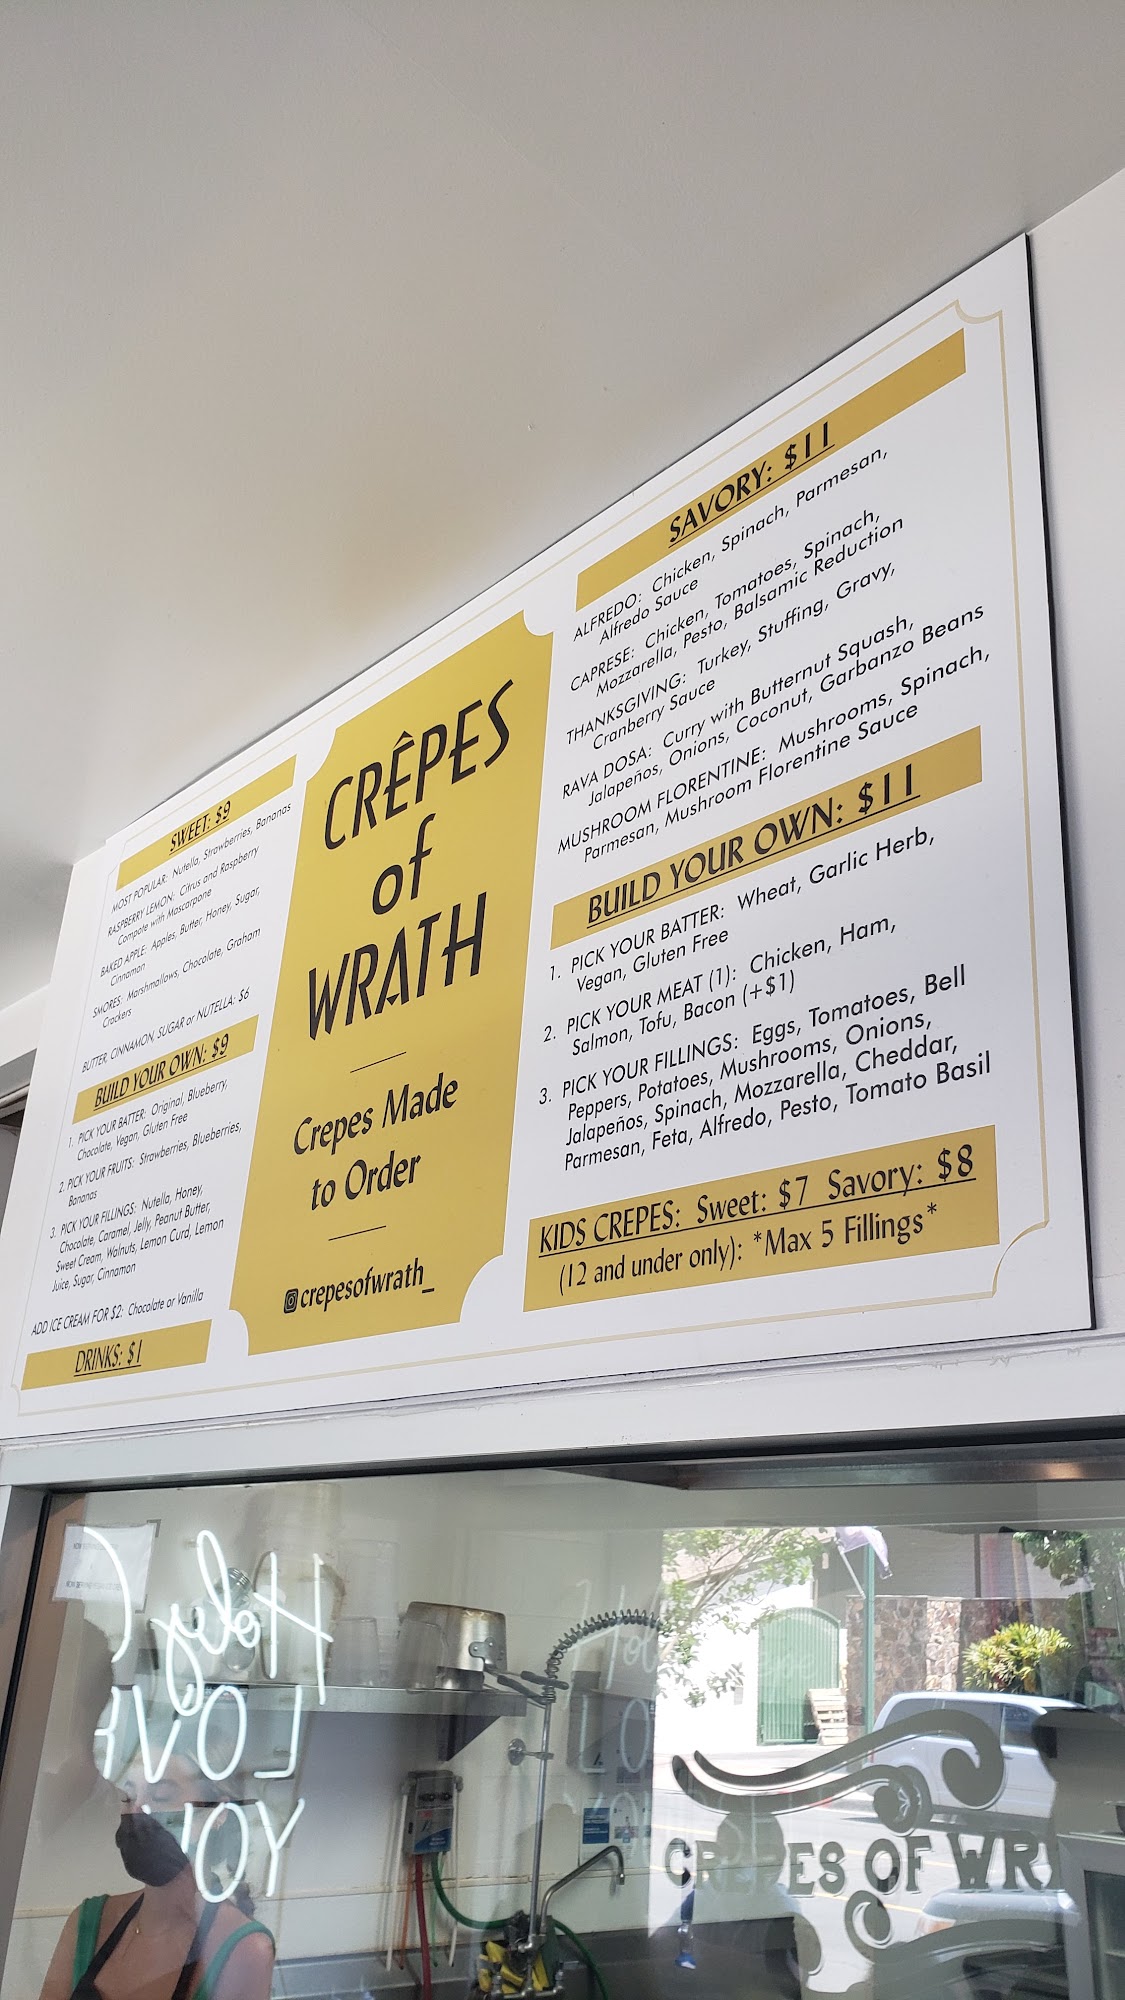 SWEET: $9
MOST POPULAR: Nutella, Strawberries, Bananas
RASPBERRY LEMON: Citrus and Raspberry
Compote with Mascarpone
BAKED APPLE: Apples, Butter, Honey, Sugar,
Cinnamon
SMORES: Marshmallows, Chocolate, Graham
Crackers
BUTTER, CINNAMON, SUGAR or NUTELLA: $6
BUILD YOUR OWN: $9
1. PICK YOUR BATTER: Original, Blueberry,
Chocolate, Vegan, Gluten Free
2. PICK YOUR FRUITS: Strawberries, Blueberries,
Bananas
3. PICK YOUR FILLINGS: Nutella, Honey,
Chocolate, Caramel, Jelly, Peanut Butter,
Sweet Cream, Walnuts, Lemon Curd, Lemon
Juice, Sugar, Cinnamon
ADD ICE CREAM FOR $2: Chocolate or Vanilla
DRINKS: $1
CRÊPES
of
WRATH
Crepes Made
to Order
@crepesofwrath_
SAVORY: $11
ALFREDO: Chicken, Spinach, Parmesan,
Alfredo Sauce
CAPRESE: Chicken, Tomatoes, Spinach,
Mozzarella, Pesto, Balsamic Reduction
THANKSGIVING: Turkey, Stuffing, Gravy,
Cranberry Sauce
RAVA DOSA: Curry with Butternut Squash,
Jalapeños, Onions, Coconut, Garbanzo Beans
MUSHROOM FLORENTINE: Mushrooms, Spinach,
Parmesan, Mushroom Florentine Sauce
BUILD YOUR OWN: $11
1. PICK YOUR BATTER: Wheat, Garlic Herb,
Vegan, Gluten Free
2. PICK YOUR MEAT (1): Chicken, Ham,
Salmon, Tofu, Bacon (+$1)
3. PICK YOUR FILLINGS: Eggs, Tomatoes, Bell
Peppers, Potatoes, Mushrooms, Onions,
Jalapeños, Spinach, Mozzarella, Cheddar,
Parmesan, Feta, Alfredo, Pesto, Tomato Basil
KIDS CREPES: Sweet: $7 Savory: $8
(12 and under only): *Max 5 Fillings*
Holy
LOVE
YOU
CREPES OF WR